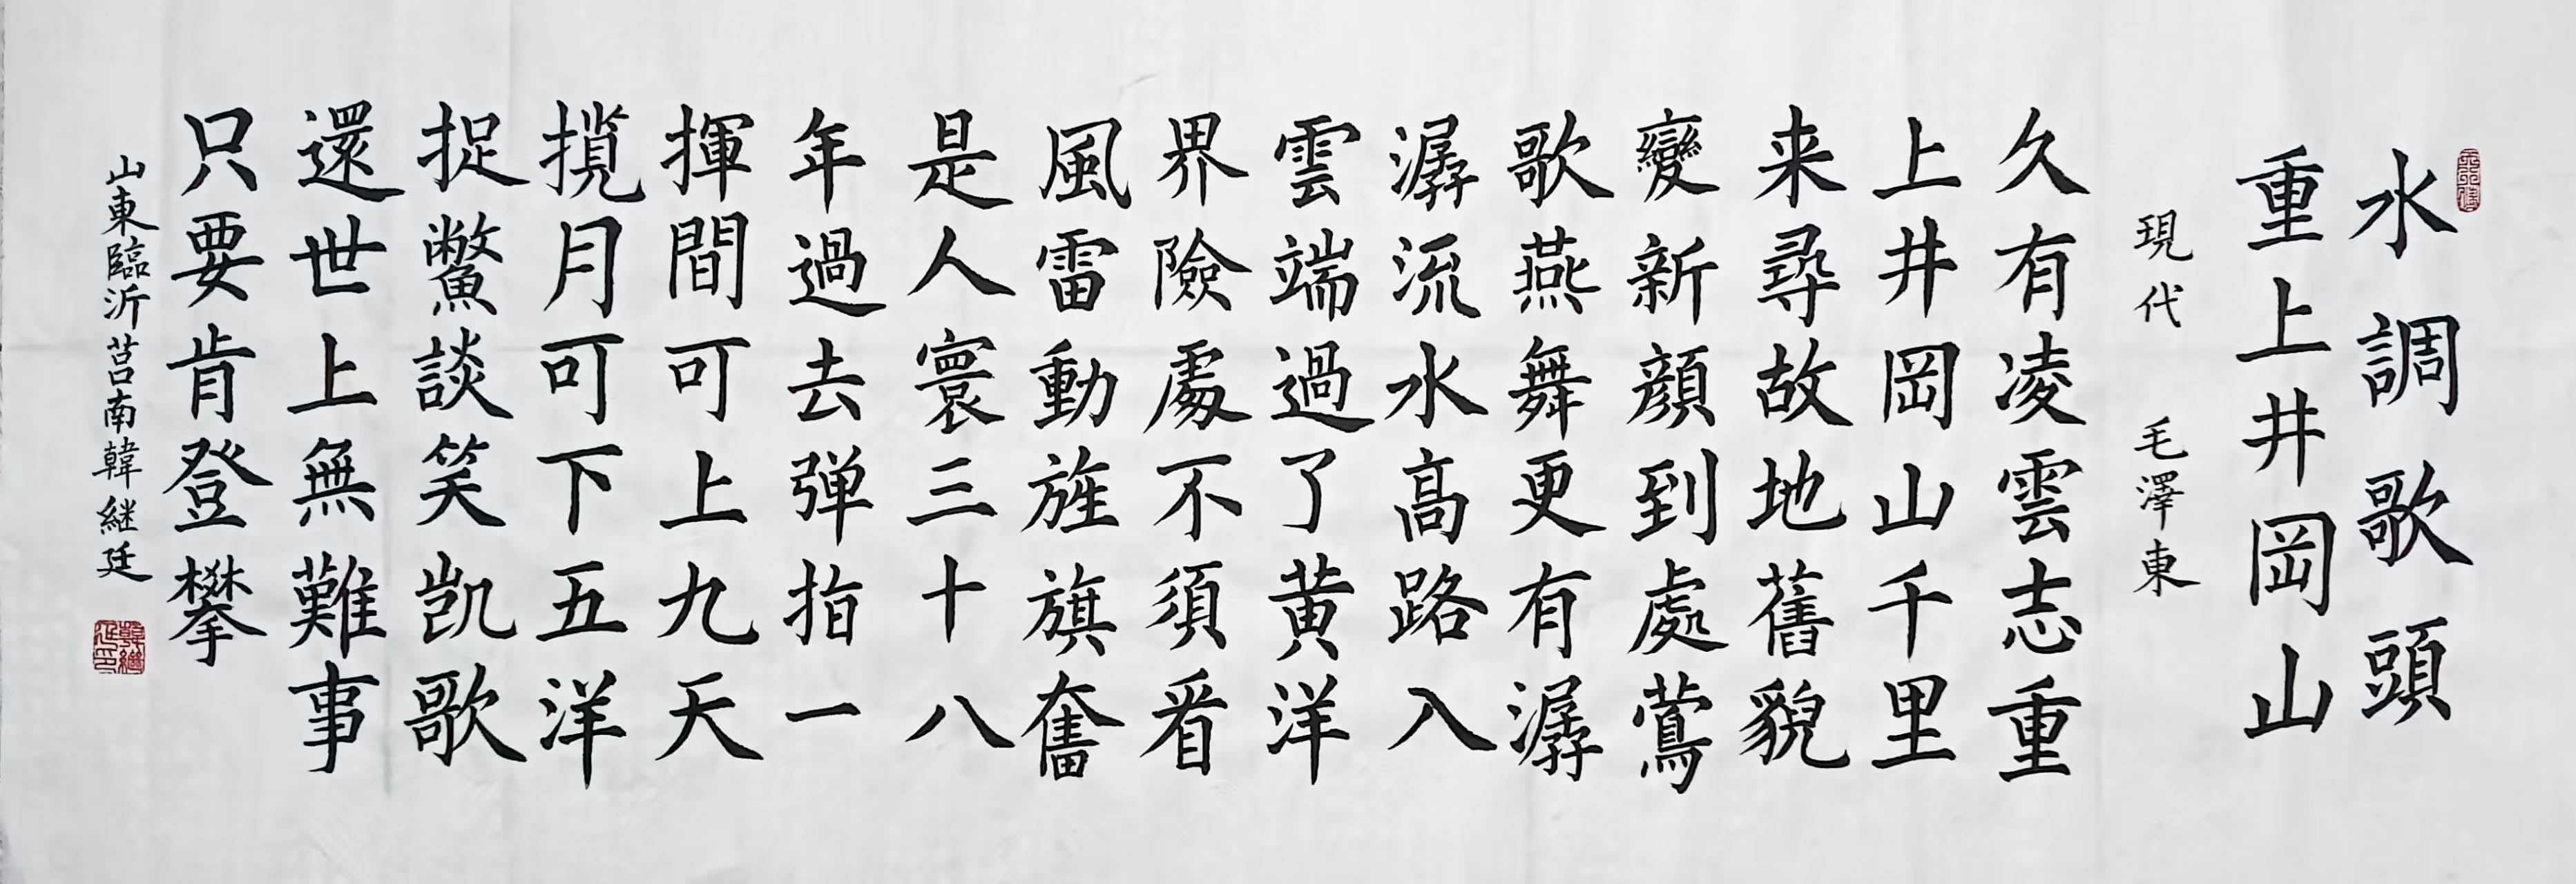 水調歌頭
重上井岡山
現代 毛澤東
久有凌雲志重
上井岡山千里
来尋故地舊貌
變新顔到處鶯
歌燕舞更有潺
潺流水高路入
雲端過了黄洋
界險處不須看
風雷動旌旗奮
是人寰三十八
年過去弹指一
揮間可上九天
攬月可下五洋
捉鱉談笑凯歌
還世上無難事
只要肯登攀
山東臨沂莒南韓継廷